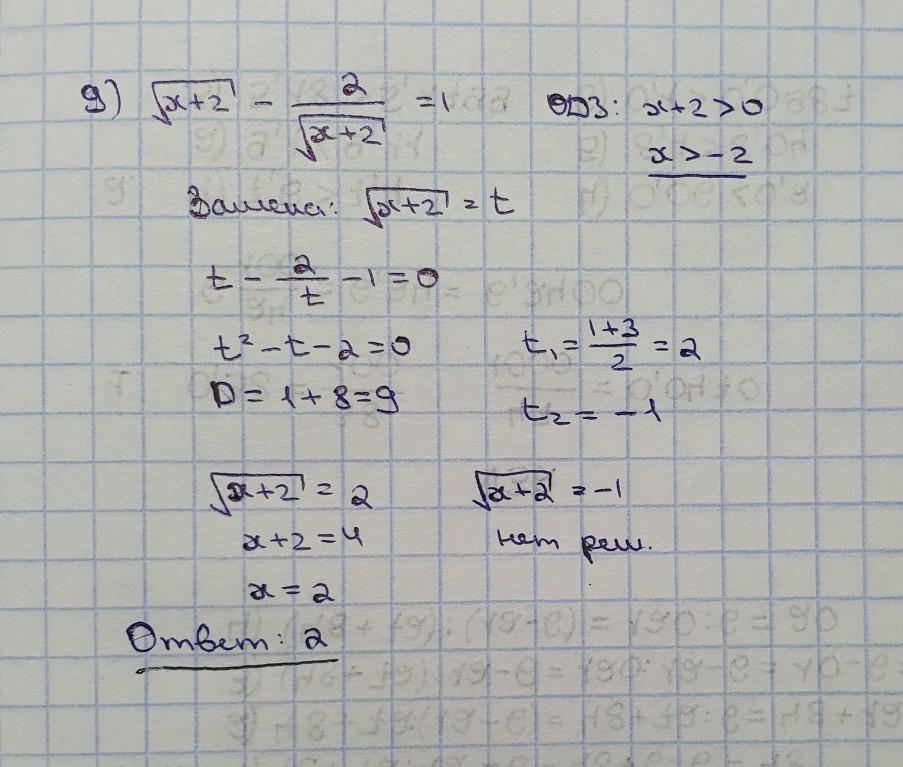 9) √(x+2) - 2/√(x+2) = 1 ОДЗ: x+2>0
x>-2
Замена: √(x+2) = t
t - 2/t - 1 = 0
t² - t - 2 = 0 t₁ = (1+3)/2 = 2
D = 1 + 8 = 9 t₂ = -1
√(x+2) = 2 √(x+2) = -1
x+2 = 4 нет реш.
x = 2
Ответ: 2